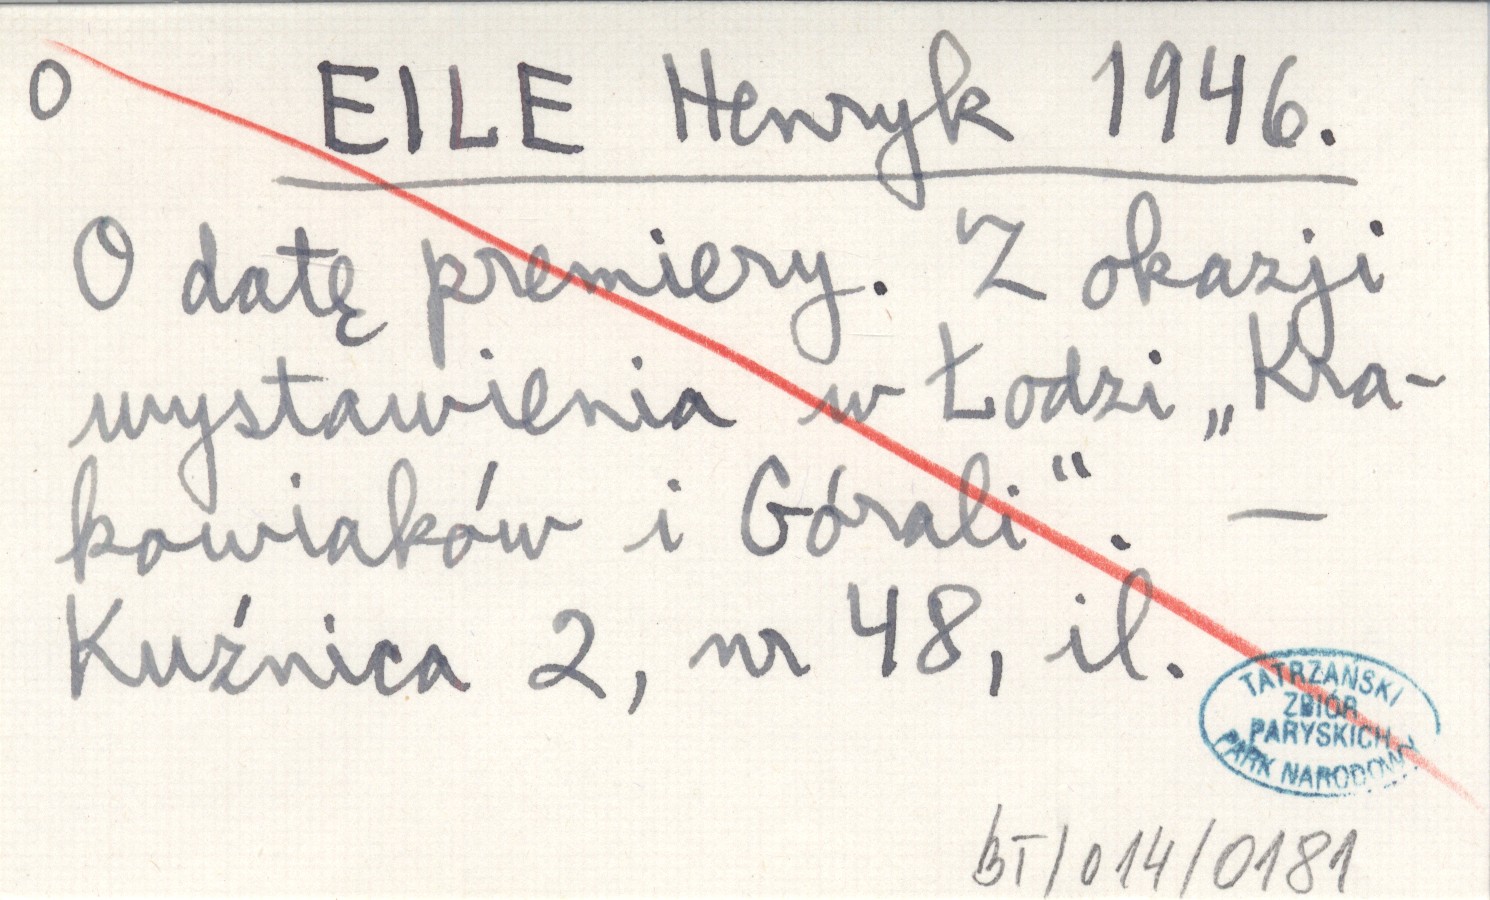 O EILE Henryk 1946.
O datę premiery. Z okazji
wystawienia w Łodzi „Kra-
kowiaków i Górali“. —
Kuźnica 2, nr 48, il.
TATRZAŃSKI
ZBIÓR
PARYSKICH
PARK NARODOWY
BT/014/0181